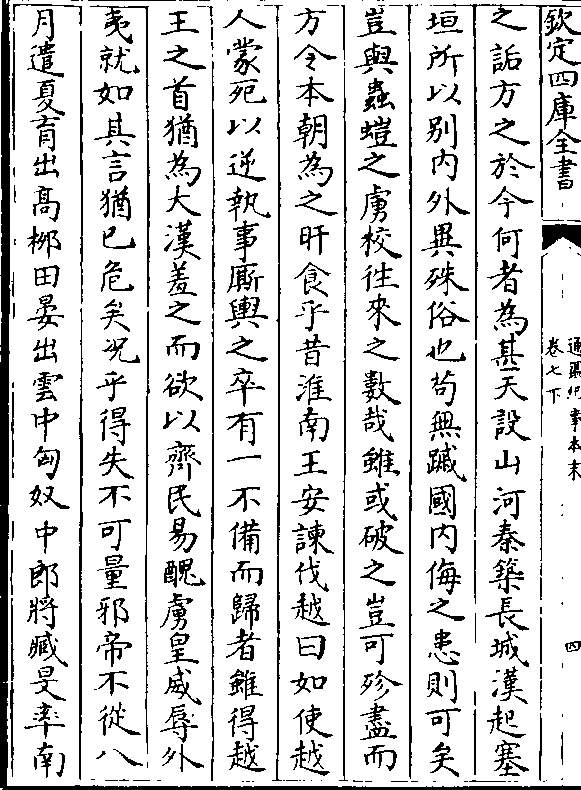 欽定四庫全書
通鑑紀事本末
卷七下
四
之詬方之於今何者為甚天設山河秦築長城漢起塞
垣所以别内外異殊俗也茍無蹴國内侮之患則可矣
豈與蟲螘之虜校往來之數哉雖或破之豈可殄盡而
方令本朝為之旰食乎昔淮南王安諫伐越曰如使越
人蒙死以逆執事厮輿之卒有一不備而歸者雖得越
王之首猶為大漢羞之而欲以齊民易醜虜皇威辱外
夷就如其言猶已危矣况乎得失不可量邪帝不從八
月遣夏育出髙柳田晏出雲中匈奴中郎將臧旻率南